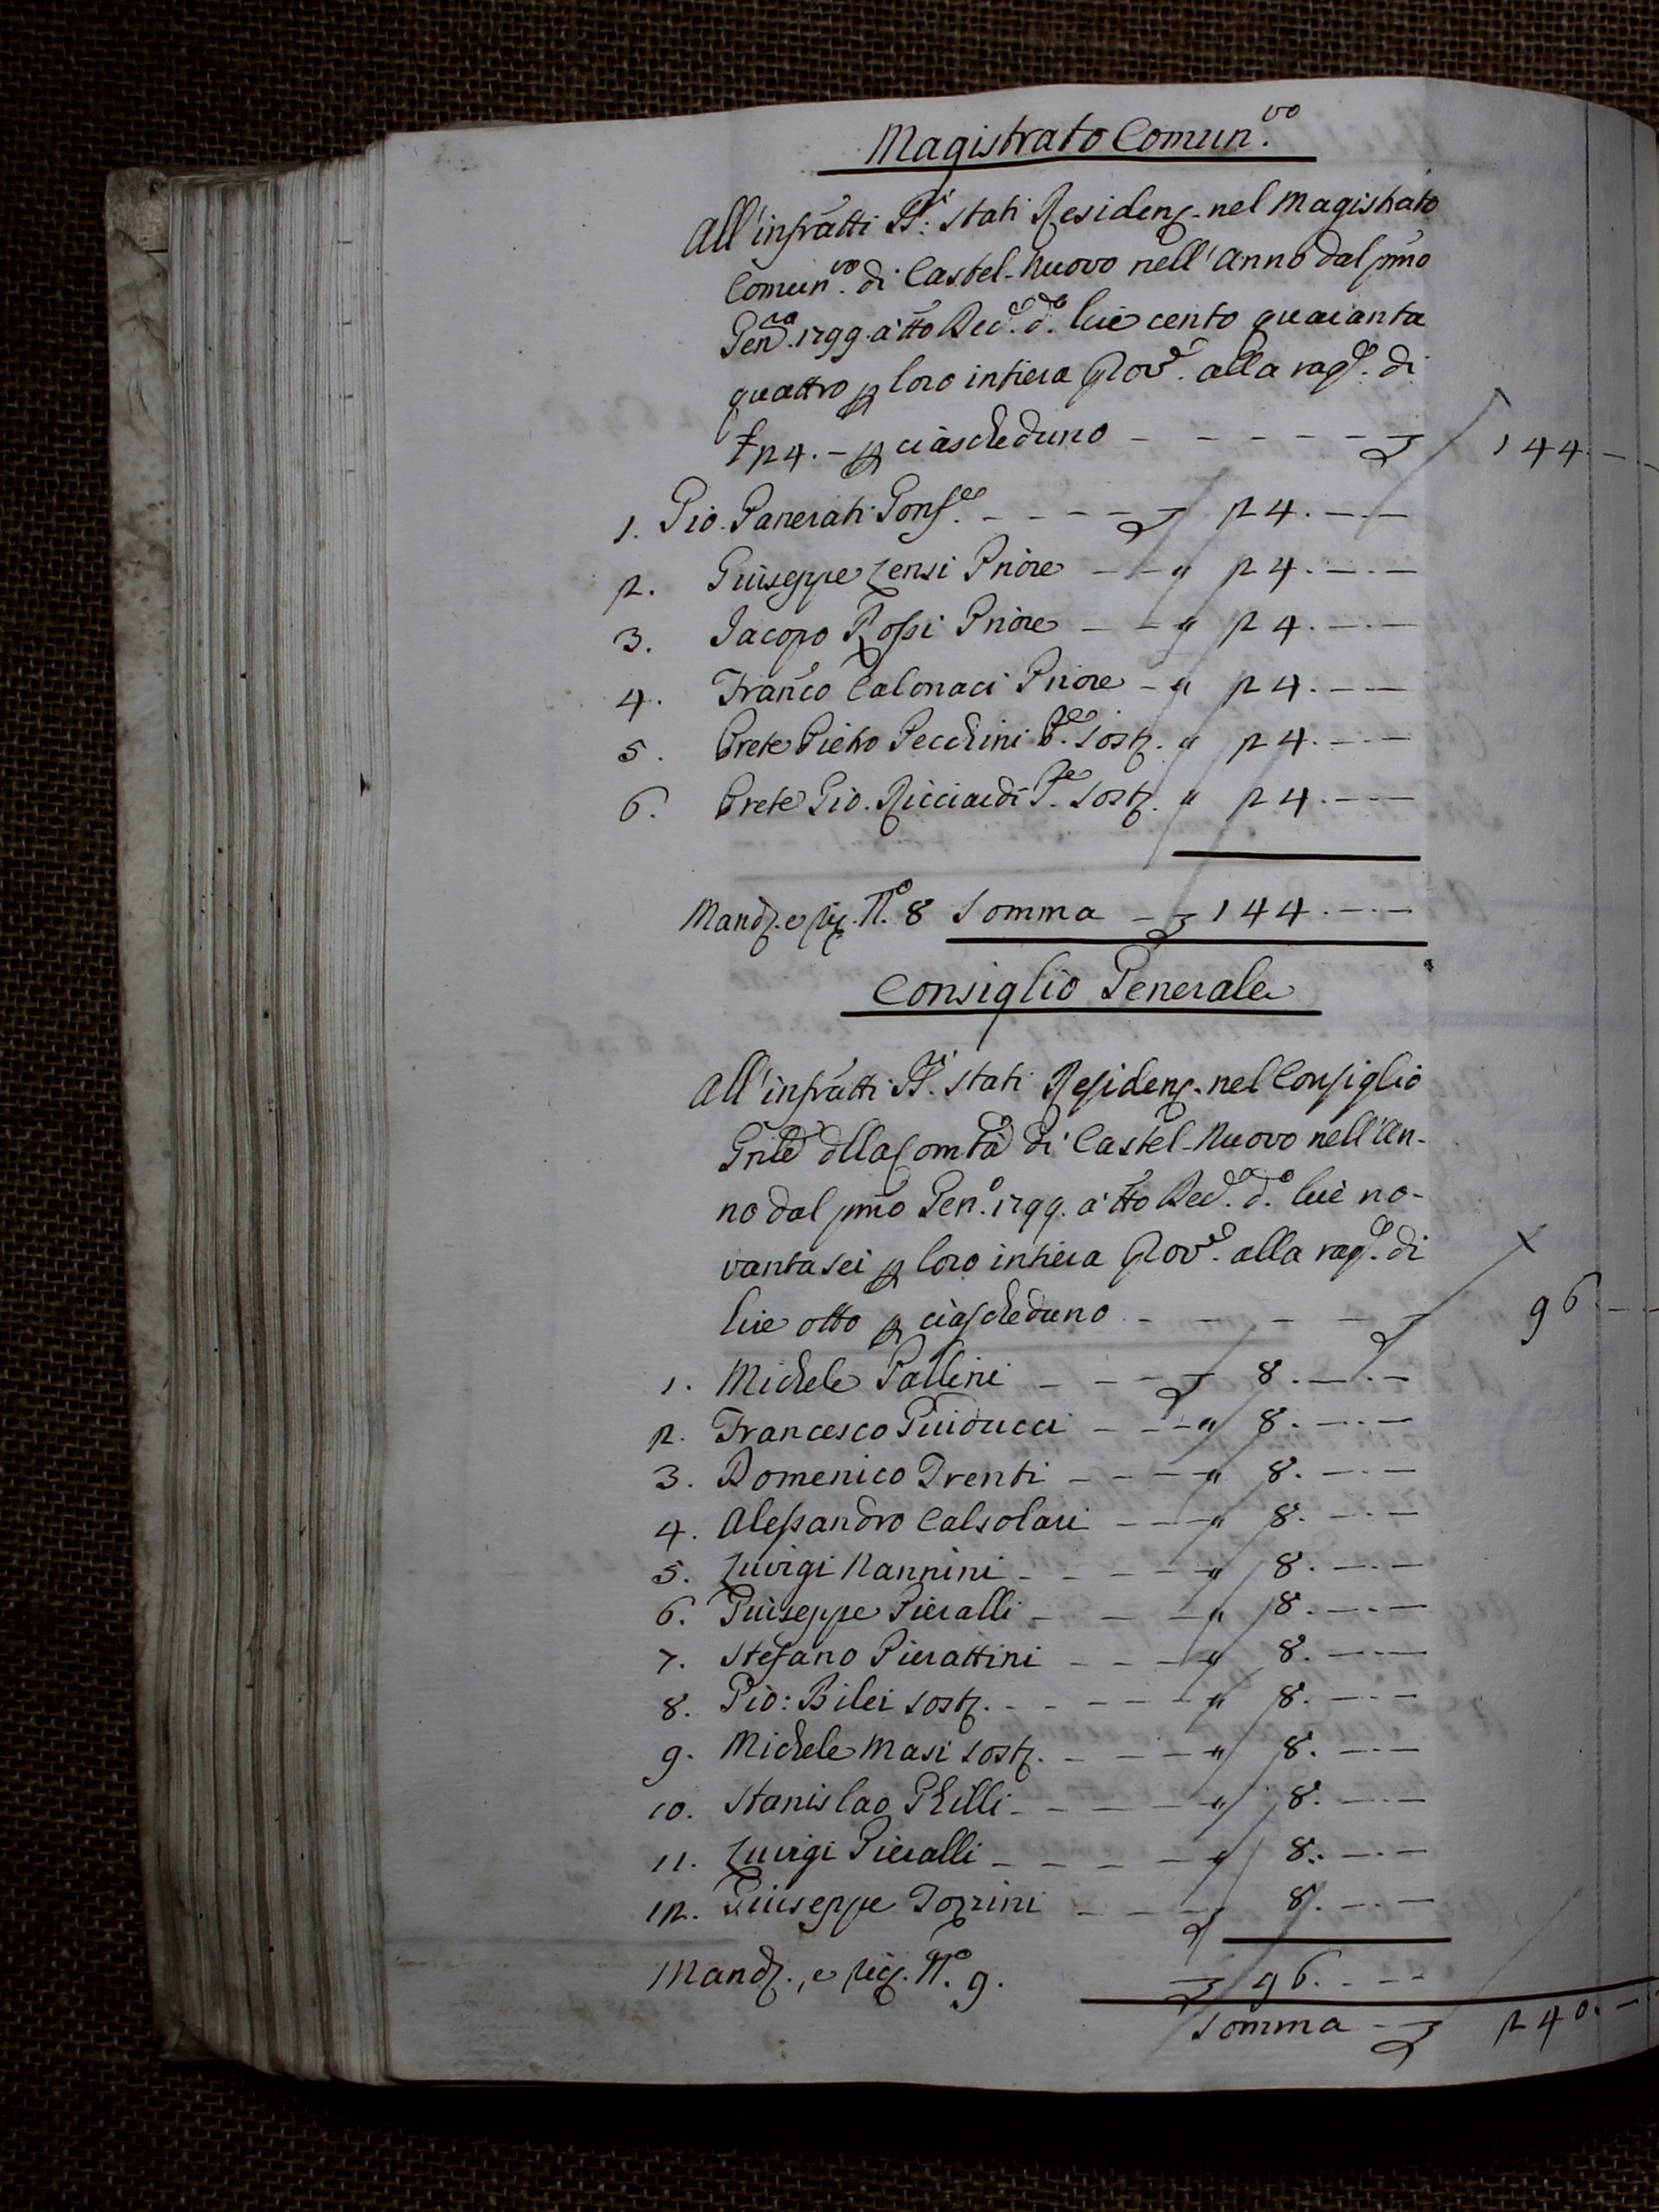 Magistrato Comun.vo
All'infratti SS.i stati Residenz. nel Magistrato
Comun.vo di Castel-Nuovo nell'Anno dal pmo
Genn.ro 1799. a tto Dec.e d.o lire cento quaranta
quattro p loro intiera Prov.e alla rag.e di
£ 24. - p ciascheduno - - - - - - £ 144. - . -
1. Gio. Panerati Gonf.e - - - - £ 24. - . -
2. Giuseppe Lensi Priore - - " 24. - . -
3. Jacopo Rossi Priore - - " 24. - . -
4. Franco Calonaci Priore - " 24. - . -
5. Prete Pietro Pecchini P.e Sost. " 24. - . -
6. Prete Gio. Ricciardi P.e Sost. " 24. - . -
Mand. e Ric. N.o 8 Somma - £ 144. - . -
Consiglio Generale
All'infratti SS.i stati Residenz. nel Consiglio
Gnle dlla Comtà di Castel-Nuovo nell'An-
no dal pmo Gen.o 1799. a tto Dec.e d.o lire no-
vantasei p loro intiera Prov.e alla rag.e di
lire otto p ciascheduno - - - - - £ 96. - . -
1. Michele Pallini - - - - £ 8. - . -
2. Francesco Guiducci - - - " 8. - . -
3. Domenico Trenti - - - - " 8. - . -
4. Alessandro Calsolari - - - " 8. - . -
5. Luigi Nannini - - - - - " 8. - . -
6. Giuseppe Pieralli - - - " 8. - . -
7. Stefano Pierattini - - - - " 8. - . -
8. Gio: Bilei Sost. - - - - - " 8. - . -
9. Michele Masi Sost. - - - - " 8. - . -
10. Stanislao Ghilli - - - - - " 8. - . -
11. Luigi Pieralli - - - - - " 8. - . -
12. Giuseppe Torrini - - - - £ 8. - . -
Mand., e Ric. N.o 9. £ 96. - . -
Somma - £ 240. - . -